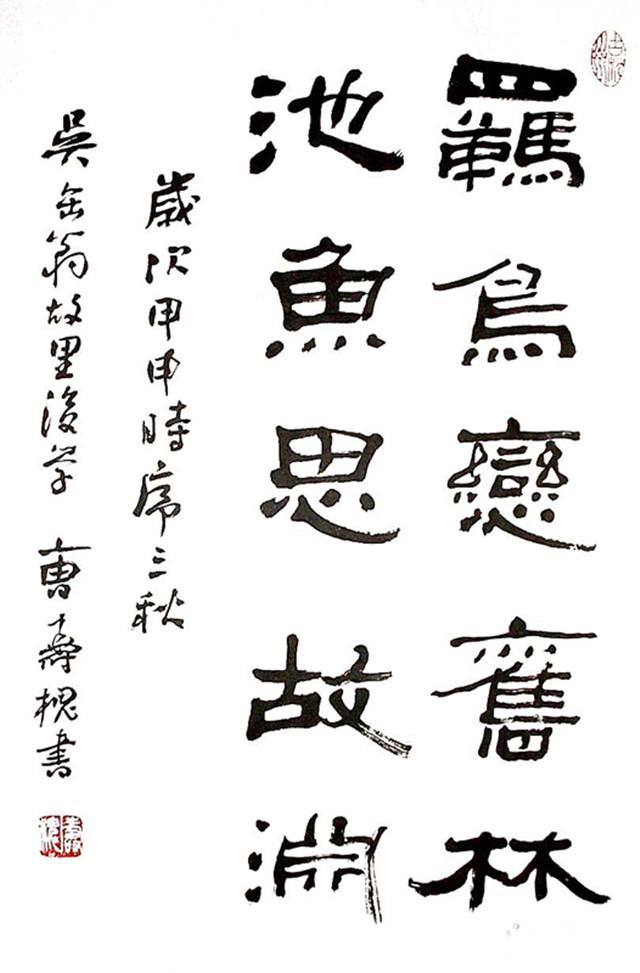 羈鳥戀舊林
池魚思故淵
歲次甲申時序三秋
吳缶翁故里後學 曹壽槐書